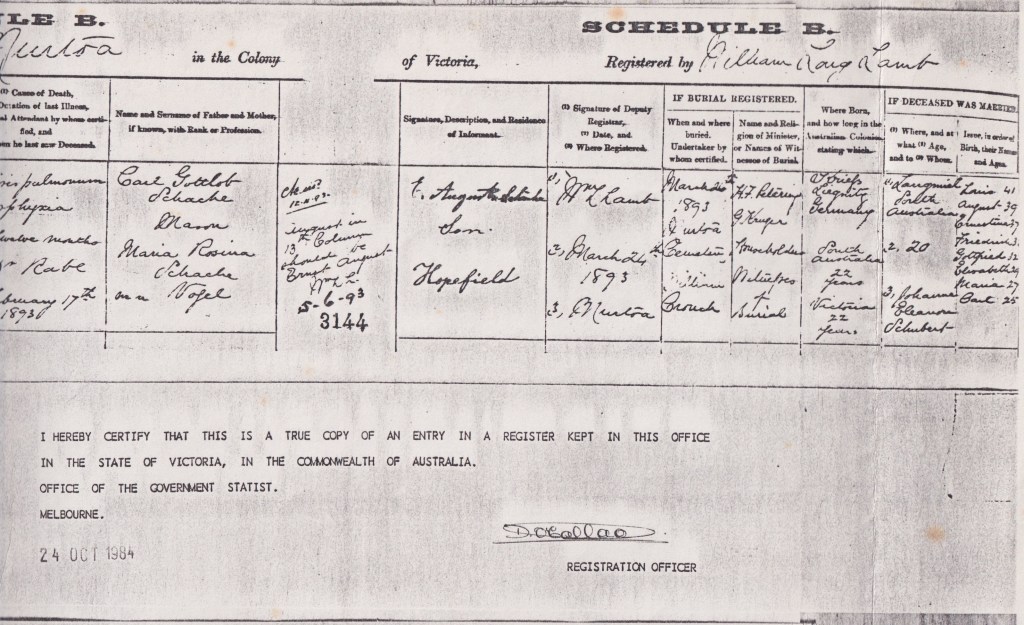 LE B.
SCHEDULE B.
Murtoa
in the Colony
of Victoria,
Registered by William Lamb
(1) Cause of Death,
Duration of last Illness,
al Attendant by whom certi-
fied, and
en he last saw Deceased.
Name and Surname of Father and Mother,
if known, with Rank or Profession.
Signature, Description, and Residence
of Informant.
(1) Signature of Deputy
Registrar,
(2) Date, and
(3) Where Registered.
IF BURIAL REGISTERED.
When and where
buried.
Undertaker by
whom certified.
Name and Reli-
gion of Minister,
or Names of Wit-
nesses of Burial.
Where Born,
and how long in the
Australian Colonies,
stating which.
IF DECEASED WAS MARRIED
(1) Where, and at
what (2) Age,
and to (3) Whom.
Issue, in order of
Birth, their Names
and Ages.
pulmonum
twelve months
Rabe
February 17th
1893
Carl Gottlob
Schache
Mason
Maria Rosina
Schache
Vogel
August in
13th Column
should be
Ernst August
5-6-93
3144
August Schache
Son.
Hopefield
1, Wm
Lamb
2, March 24th
1893
3, Murtoa
March
1893
Murtoa
Cemetery
William
Crouch
H. F. Petering
G. Kruger
Householder
Witness
Burial
Liegnitz
Germany
South
Australia
22
years
Victoria
22
years
1, Langmeil
South
Australia
2, 20
3, Johanne
Eleanora
Schubert
Louis 41
August 39
Ernestine 37
Gottfried
Maria 27
Carl 25
I HEREBY CERTIFY THAT THIS IS A TRUE COPY OF AN ENTRY IN A REGISTER KEPT IN THIS OFFICE
IN THE STATE OF VICTORIA, IN THE COMMONWEALTH OF AUSTRALIA.
OFFICE OF THE GOVERNMENT STATIST.
MELBOURNE.
24 OCT 1984
REGISTRATION OFFICER